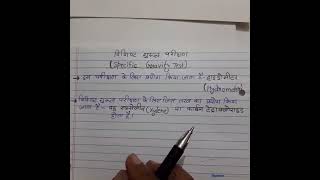 विशिष्ट गुरुत्व परीक्षण
(Specific Gravity Test)
→ इस परीक्षण के लिए प्रयोग किया जाता है- हाइड्रोमीटर
(Hydrometer)
→ विशिष्ट गुरुत्व परीक्षण के लिए जिस तरल का प्रयोग किया
जाता है- वह जाइलीन (Xylene) या कार्बन टेट्राक्लोराइड
होता है।